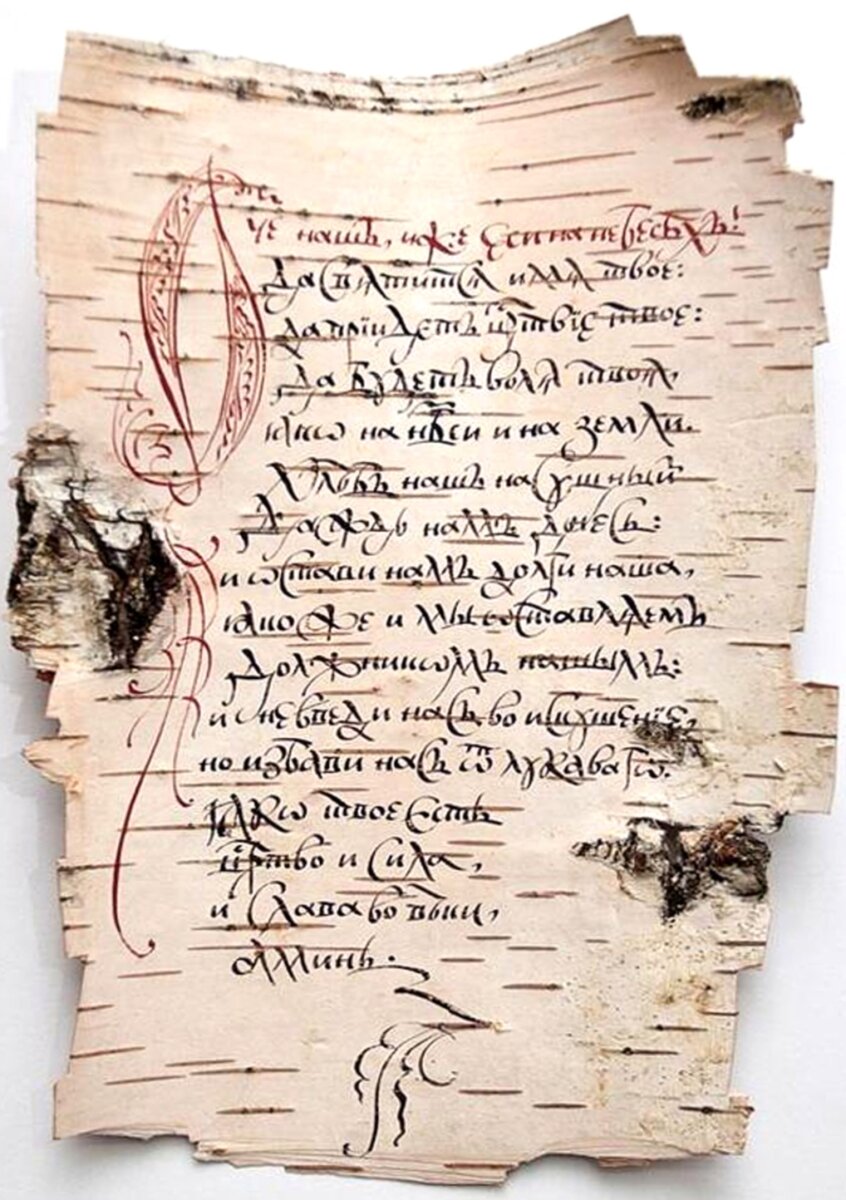 Отче нашъ, иже еси на небесѣхъ!
да свѧтитсѧ имѧ твое:
да прїидетъ цр҃твїе твое:
да будетъ волѧ твоѧ,
ꙗкѡ на нб҃си и на земли.
Хлѣбъ нашъ насущный
даждь намъ днесь:
и ѡстави намъ долги наша,
ꙗкоже и мы ѡставлѧемъ
должникѡмъ нашымъ:
и не введи насъ во искушенїе,
но избави насъ ѿ лукавагѡ.
Ꙗкѡ твое есть
црⷭ҇тво и сила,
и слава во вѣки,
аминь.